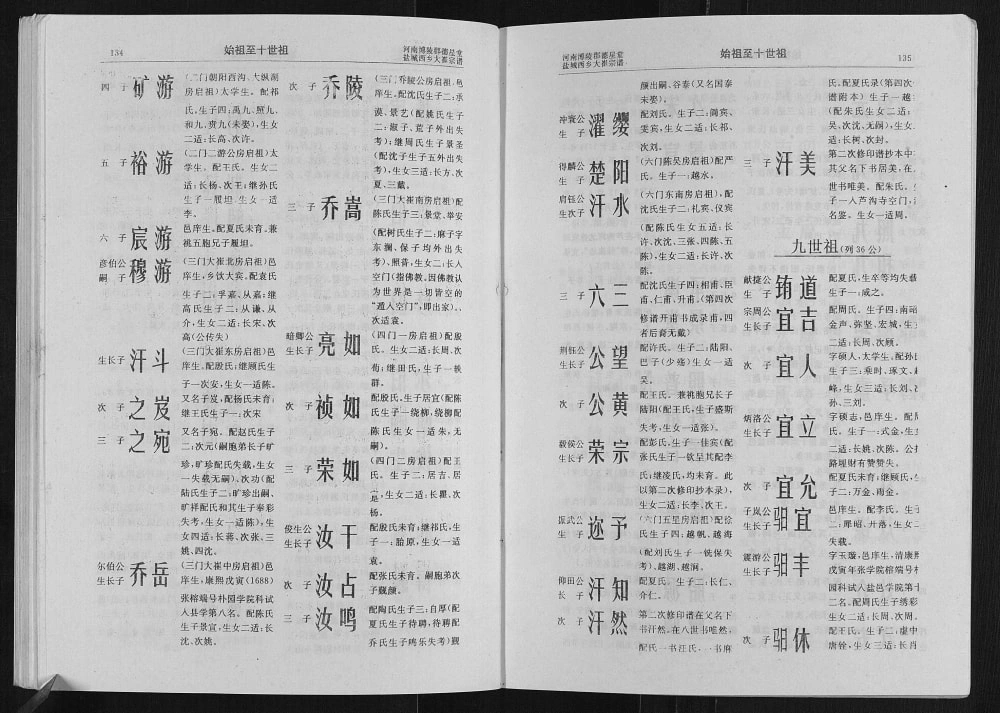 134
始祖至十世祖
河南博陵郡德星堂
盐城西乡大崔宗谱
四 子
矿游
(二门朝阳西沟、大纵湖
房启祖)太学生。配祁
氏,生子四:禹九、照九、
和九、赍九(未娶),生女
二适:长高、次许。
五 子
裕游
(二门二游公房启祖)太
学生。配王氏。生女二
适:长杨、次王;继孙氏
生子一履坦 生女一适
李。
六 子
宸游
邑庠生。配夏氏未育。兼
祧五胞兄子履坦。
彦伯公
嗣 子
穆游
(三门大崔北房启祖)邑
庠生,乡饮大宾。配袁氏
生子二:孚嘉、从嘉;继
高氏生子二:从谦、从
介,生女二适:长宋、次
高(公传失)
生长子
汗斗
(三门大崔东房启祖)邑
庠生。配殷氏;继顾氏生
子一次安,生女一适陈。
次 子
之岌
又名子岌;配杨氏未育;
继王氏生子一:次宋
三 子
之宛
又名子宛。配赵氏生子
二:次元(嗣胞弟长子旷
珍,旷珍配氏失载,生女
一失载无嗣)、次功(配
陆氏生子二:旷珍出嗣、
旷祥配氏和其生子奉彩
失考,生女一适陈),生
女四适:长蒋、次张、三
姚、四沈。
尔伯公
生长子
乔岳
(三门大崔中房启祖)邑
庠生,康熙戊寅(1688)
张榕端号朴园学院科试
入县学第八名。配陈氏
生子景宣,生女二适:长
沈、次姚。
次 子
乔陵
(三门乔陵公房启祖)邑
庠生。配沈氏生子二:承
谟、景艺(配姚氏生子
二:淑子、荒子外出失
考);继周氏生子景圣
(配沈子生子五外出失
考),生女二适:长方、次
夏、三戴。
三 子
乔嵩
(三门大崔南房启祖)配
陈氏生子三:景堂、举安
(配树氏生子二:麻子字
东澜、保子均外出失
考)、照普,生女二:长人
空门(指佛教,因佛教认
为世界是一切皆空的
“遁入空门”,即出家)、
次适袁。
暗卿公
生长子
亮如
(四门一房启祖)配殷
氏。生女二适:长周、次
荀;继田氏;生子一轶
群。
次 子
祯如
配殷氏,生子居宜(配陈
氏生子一绕柳,绕柳配
陈氏生女一适朱,无
嗣)。
三 子
荣如
(四门二房启祖)配王
氏。生子二:居吉、居
是,生女二适:长瞿、次
杨。
俊生公
生长子
汝干
配殷氏未育;继祁氏,生
子一:胎原,生女一适
袁。
次 子
汝占
配张氏未育。嗣胞弟次
子觐颜。
三 子
汝鸣
配陶氏生子三:自厚(配
夏氏生子待聘,待聘配
乔氏生子鸣乐失考)觐
河南博陵郡德星堂
盐城西乡大崔宗谱
始祖至十世祖
135
颜出嗣、谷泰(又名国泰
未娶)。
冲寰公
生 子
濯缨
配刘氏。生子二:闾宾、
雯宾,生女二适:长祁、
次刘。
得麟公
生 子
楚阳
(六门陈吴房启祖)配严
氏。生子一:越水。
启钰公
生次子
汗水
(六门东南房启祖)。配
沈氏生子二:礼宾、仪宾
(配陈氏生女五适:长
许、次沈、三张、四陈、五
陈),生女二适:长许、次
陈。
三 子
六三
配沈氏生子四:相甫、臣
甫、仁甫、升甫。(第四次
修谱开甫书成录甫,四
者后裔无载)
荆钰公
生长子
公望
配许氏。生子二:陆阳、
巴子(少殇)生女一适
吴。
次 子
公黄
配王氏。兼祧胞兄长子
陆阳(配王氏,生子盛斯
失考,生女一适张)。
毅侯公
生长子
荣宗
配彭氏,生子一佳宾(配
张氏生子一钦呈其配李
氏;继凌氏,均未育。此
以第二次修印抄本录),
生女二适:长李、次王。
振武公
生 子
迩予
(六门五星房启祖)配徐
氏。生子四:越帆、越海
(配刘氏生子一铣保失
考)、越湖、越涧。
仰田公
长 子
汗知
配夏氏。生子二:长仁、
介仁。
次 子
汗然
第二次修印谱在又名下
书汗然。在八世书唯然,
配氏一书汪氏、一书麻
氏。配夏氏录(第四次
谱附本)生子一越
(配朱氏生女二适:
吴、次沈、无嗣),生女二
适:长树、次封。
三 子
汗美
第二次修印谱抄本中
其又名下书居美,在
世书唯美。配朱氏。生
子一人芦沟寺空门,
名鉴。生女一适周。
九世祖(列36公)
献捷公
生 子
铕道
配夏氏,生卒等均失载
生子一:咸之。
宗周公
生 子
宜吉
配周氏。生子四:南
金声、弥坚、宏城,生
二适:长周、次顾。
次 子
宜人
字硕人,太学生。配孙
生子三:乘时、琢文、
峰,生女三适:长刘、
孙、三刘。
炳洛公
生长子
宜立
字硕志,邑庠生。配
氏。生子一:式金,生
适:长姚、次陈。公
路理财有赞赞失。
次 子
宜允
配周氏未育;继顾氏,
子二:万金、雨金。
子岚公
生 子
驲宜
邑庠生。配李氏。生
二:郿昭、廾落,生女二
失载。
震游公
生长子
驲丰
字玉璇,邑庠生,清康熙
戊寅年张学院榕端号
园科试入盐邑学第十
名。配周氏生子绣彩
女二适:长周、次许。
次 子
驲休
配王氏。生子二:虚中
唐铨,生女三适:长肖